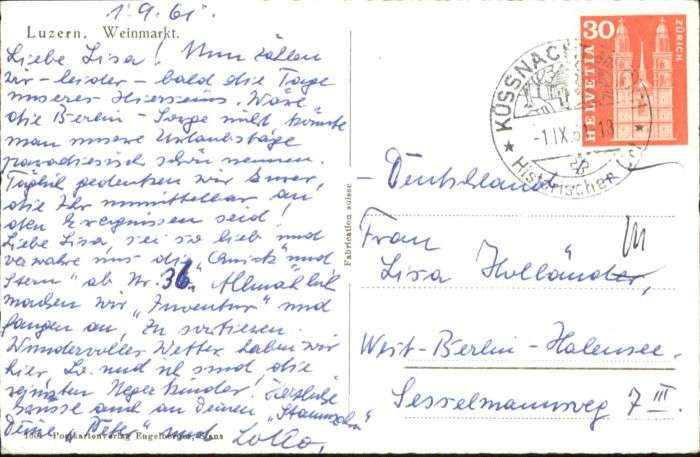 1.9.61.
Luzern. Weinmarkt.
Liebe Lisa! Nun zählen
wir - leider - bald die Tage
unseres Hierseins. Wäre
die Berlin-Sorge nicht könnte
man unsere Urlaubstage
paradiesisch schön nennen.
Täglich gedenken wir Eurer,
die Ihr unmittelbar an
den Ereignissen seid!
Liebe Lisa, sei so lieb und
verwahre uns die „Quick" und
Stern" ab Nr. 36." Allmählich
machen wir „Inventur" und
fangen an, zu sortieren.
Wundervolles Wetter haben wir
hier, Lo. und ich sind die
reinsten Negerkinder. Herzliche
Grüsse auch an Deinen „Stammhalter"
Deine „Peter" und Lollo,
Postkartenverlag Engelberger, Stans
Fabrication suisse
30
HELVETIA
ZÜRICH
KÜSSNACHT
-1.IX.61.-18
Historischer
- Deutschland -
Frau
Lisa Holländer,
West-Berlin-Halensee.
Sesselmannsweg 7 III.